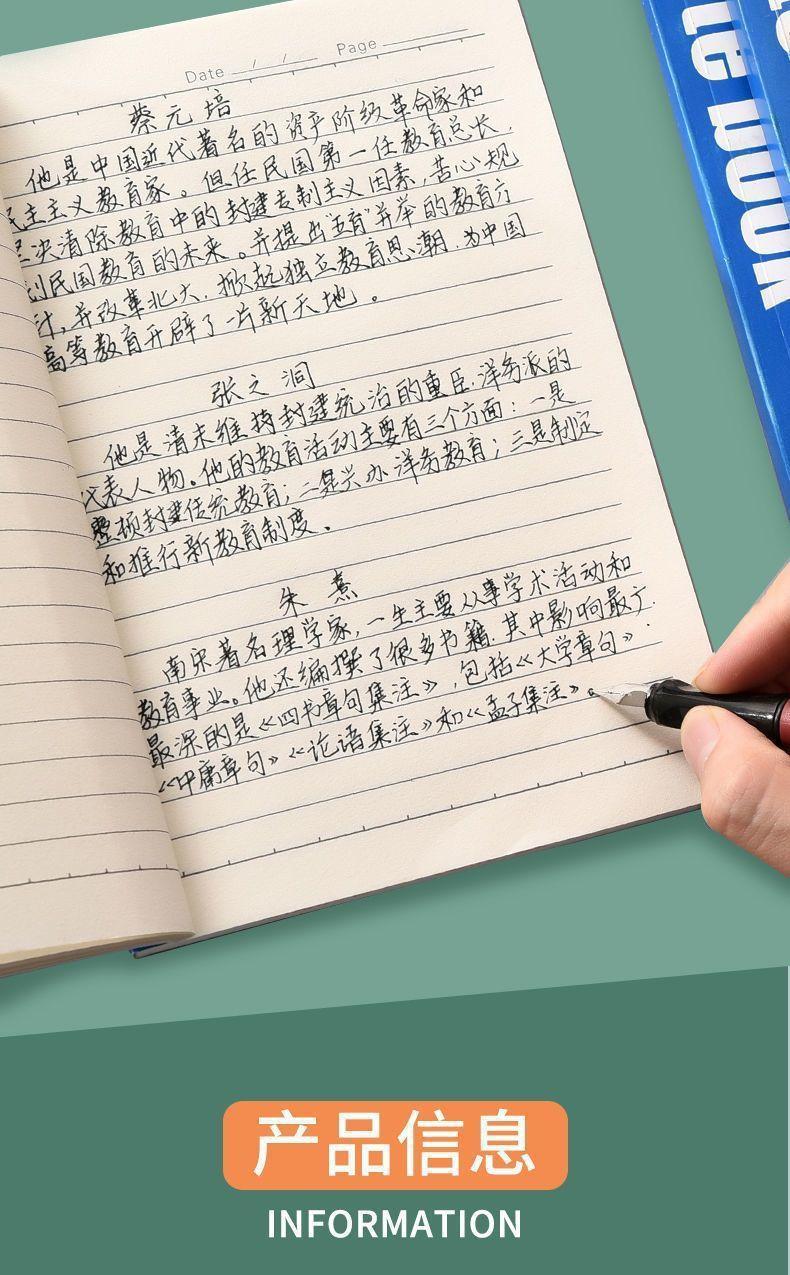 Date / / Page
te book
蔡元培
他是中国近代著名的资产阶级革命家和
民主主义教育家。但任民国第一任教育总长,
坚决清除教育中的封建专制主义因素,苦心规
划民国教育的未来。并提出"五育"并举的教育方
针,并改革北大,掀起独立教育思潮,为中国
高等教育开辟了一片新天地。
张之洞
他是清末维持封建统治的重臣.洋务派的
代表人物。他的教育活动主要有三个方面:一是
整顿封建传统教育;二是兴办洋务教育;三是制定
和推行新教育制度。
朱熹
南宋著名理学家,一生主要从事学术活动和
教育事业。他还编撰了很多书籍.其中影响最广.
最深的是《四书章句集注》,包括《大学章句》.
《中庸章句》《论语集注》和《孟子集注》。
产品信息
INFORMATION